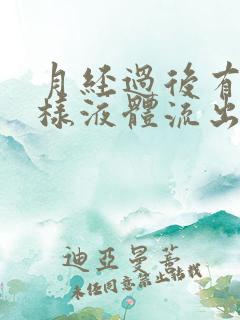 月經過後有
樣液體流出
迪亞曼蕾
未任同意禁止转找